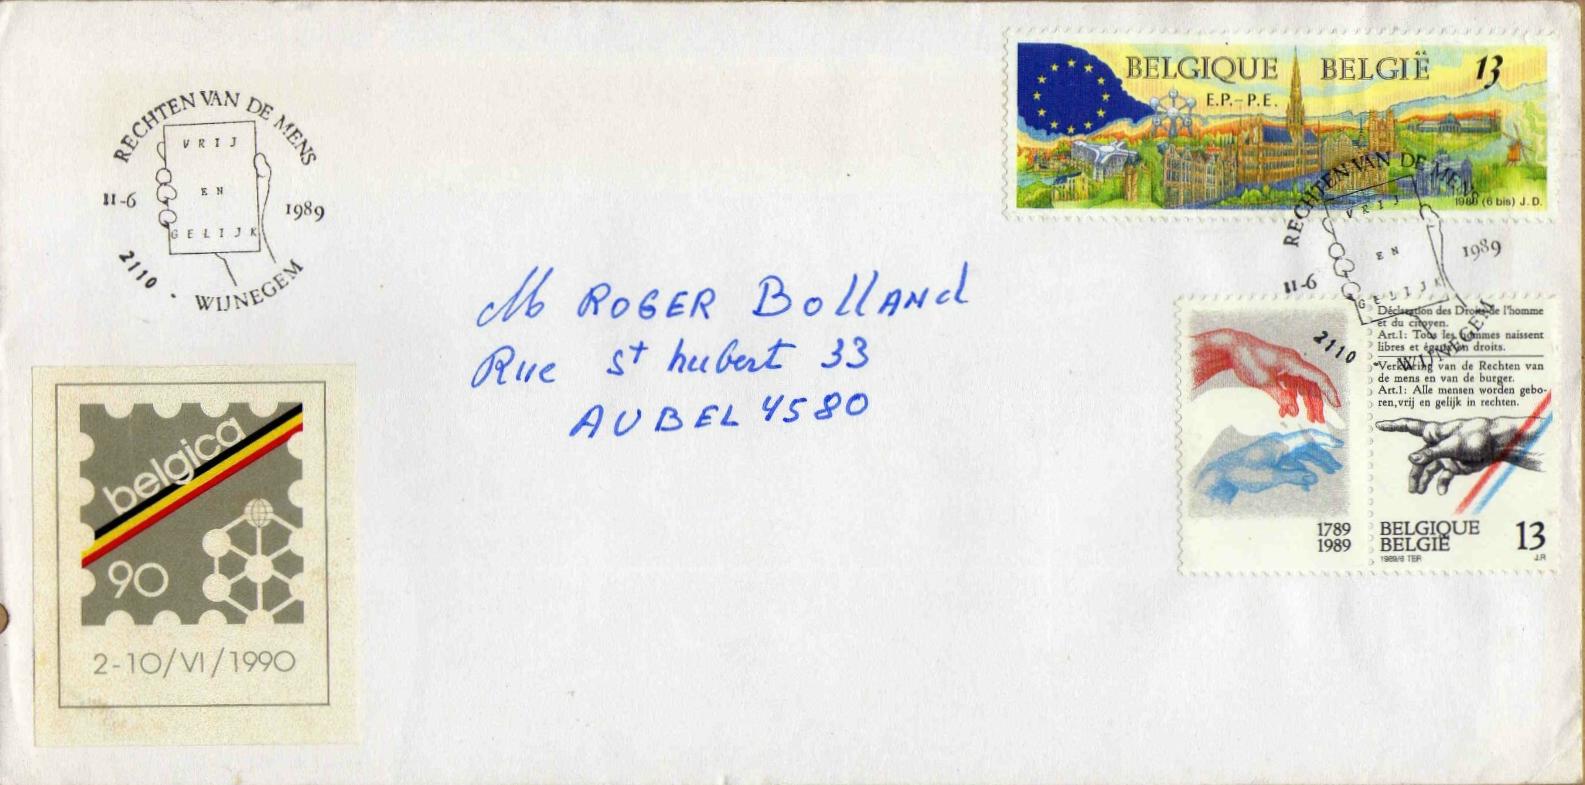 RECHTEN VAN DE MENS
VRIJ
EN
GELIJK
11-6
1989
2110 · WIJNEGEM
BELGIQUE BELGIË 13
E.P.–P.E.
1989 (6 bis) J.D.
RECHTEN VAN DE MENS
VRIJ
EN
GELIJK
11-6
1989
2110 · WIJNEGEM
M ROGER BOllANd
Rue St hubert 33
AUBEL 4580
Déclaration des Droits de l'homme
et du citoyen.
Art.1: Tous les hommes naissent
libres et égaux en droits.
Verklaring van de Rechten van
de mens en van de burger.
Art.1: Alle mensen worden gebo-
ren, vrij en gelijk in rechten.
1789
1989
BELGIQUE
BELGIË
13
1989/6 TER
J.R
belgica
90
2-10/VI/1990